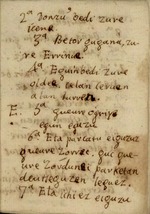 2ª Donzu bedi zure
icena
3ª Betor gugana, zu
re Erreinua
4ª Eguin bedi zure
olde, celan ceruen
alan lurrean
E. 5ª gueure ogui
egun iguzu
6ª Eta parcatu eiguzuz
gueure zorrac, guc gue
ure zordunei parcetan
deutseguzen leguez.
7ª Eta itxi ez eiguzu